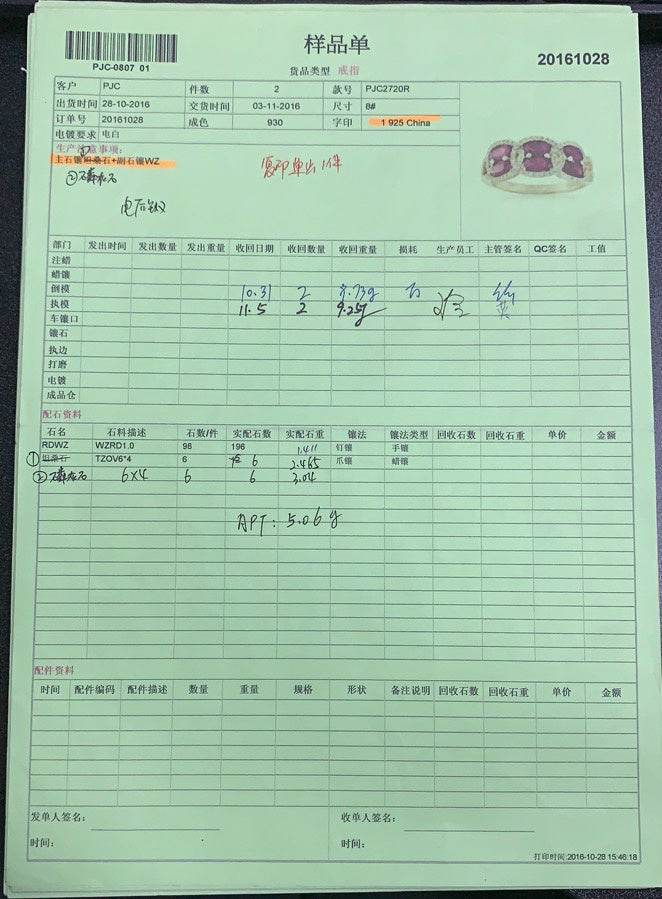 样品单
PJC-0807 01
货品类型 戒指
20161028
客户 PJC 件数 2 款号 PJC2720R
出货时间 28-10-2016 交货时间 03-11-2016 尺寸 8#
订单号 20161028 成色 930 字印 1 925 China
电镀要求 电白
生产注意事项:
主石镶坦桑石+副石镶WZ
复印单出1件
部门 发出时间 发出数量 发出重量 收回日期 收回数量 收回重量 损耗 生产员工 主管签名 QC签名 工值
注蜡
蜡镶
倒模 10.31 2 9.73g
执模 11.5 2 9.25g
车镶口
镶石
执边
打磨
电镀
成品仓
配石资料
石名 石料描述 石数/件 实配石数 实配石重 镶法 镶法类型 回收石数 回收石重 单价 金额
RDWZ WZRD1.0 98 196 1.411 钉镶 手镶
① 坦桑石 TZOV6*4 6 6 2.465 爪镶 蜡镶
② 6×4 6 6 3.04
APT: 5.06g
配件资料
时间 配件编码 配件描述 数量 重量 规格 形状 备注说明 回收石数 回收石重 单价 金额
发单人签名: 收单人签名:
时间: 时间:
打印时间:2016-10-28 15:46:18